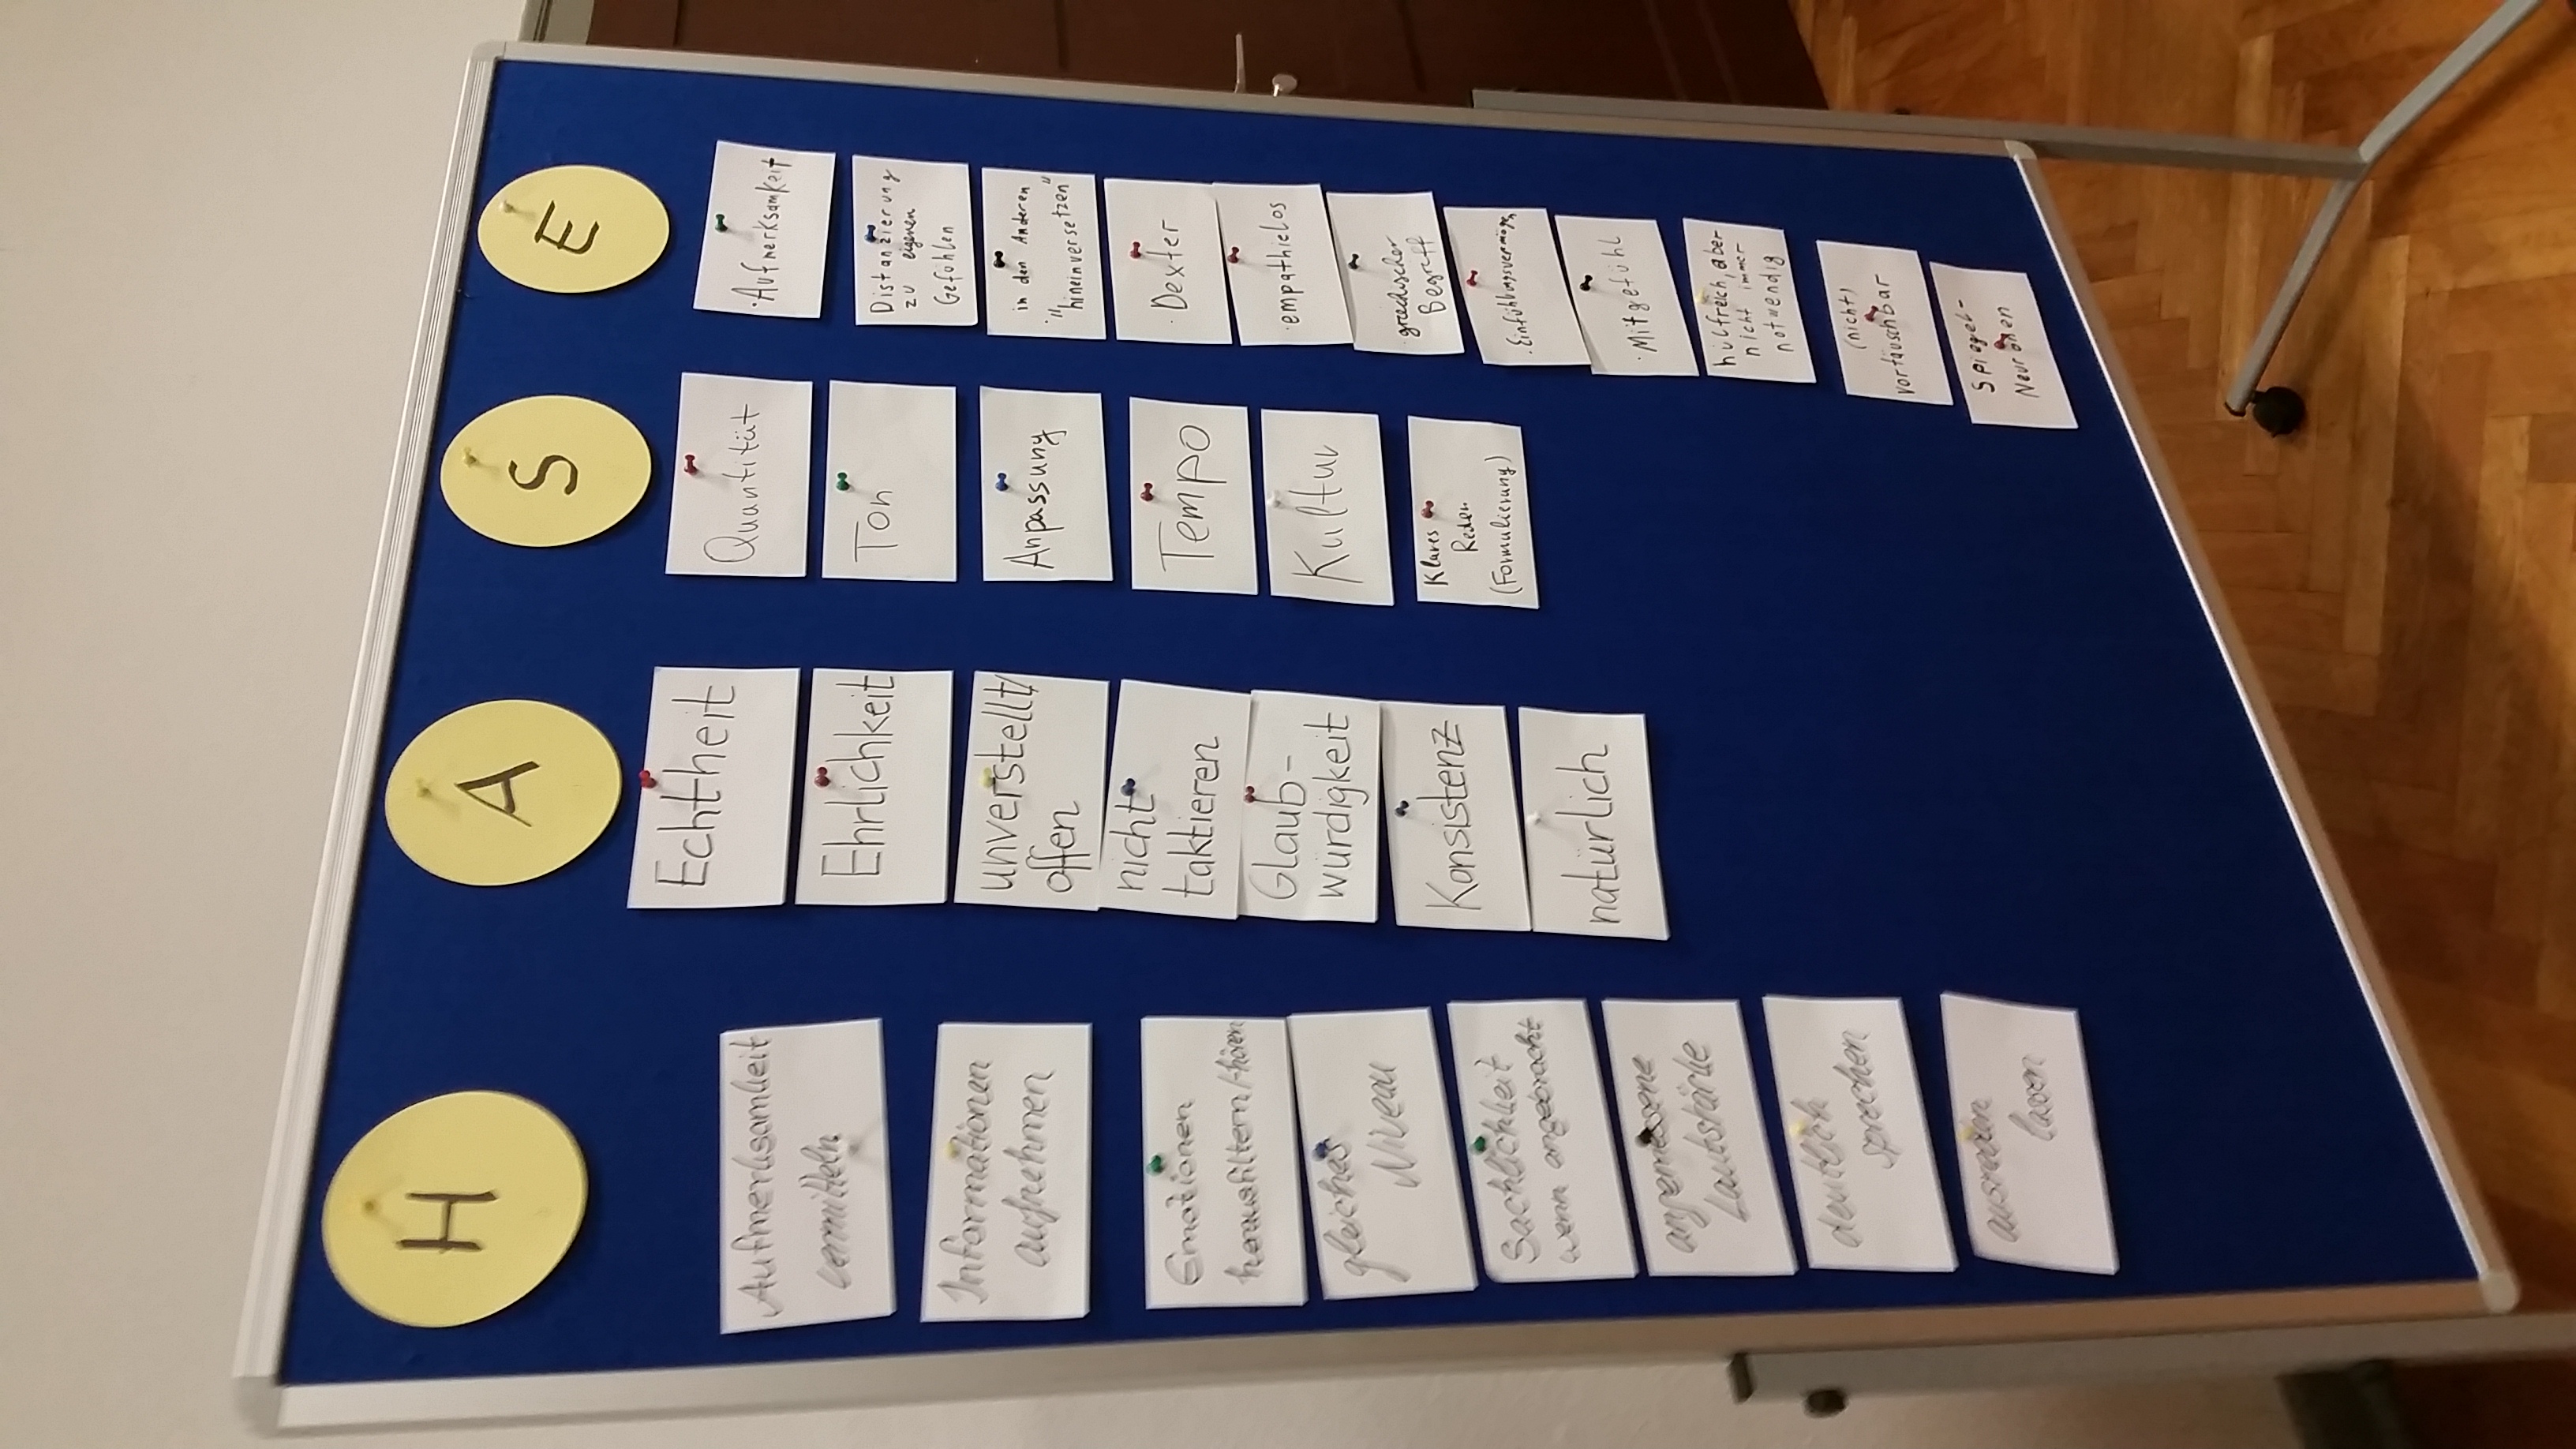 H
Aufmerksamkeit
vermitteln
Informationen
aufnehmen
Emotionen
herausfiltern/-hören
gleiches
Niveau
Sachlichkeit
wenn angebracht
angemessene
Lautstärke
deutlich
sprechen
ausreden
lassen
A
Echtheit
Ehrlichkeit
unverstellt/
offen
nicht
taktieren
Glaub-
würdigkeit
Konsistenz
natürlich
S
Quantität
Ton
Anpassung
Tempo
Kultur
Klares
Reden
(Formulierung)
E
·Aufmerksamkeit
Distanzierung
zu eigenen
Gefühlen
in den Anderen
·"hineinversetzen"
·Dexter
·empathielos
·griechischer
Begriff
·Einfühlungsvermögen
·Mitgefühl
hilfreich, aber
nicht immer
notwendig
(nicht)
vortäuschbar
Spiegel-
Neuronen